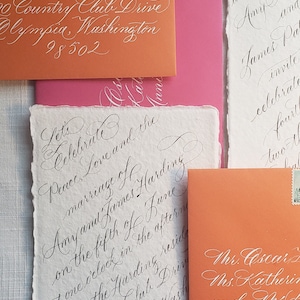 00 Country Club Drive
Olympia, Washington
98502
Let's
Celebrate
Peace Love and the
marriage of
Amy and James Harding
on the fifth of June
one o'clock in the afternoon
the Harding
Club Drive
Amy and
James
invite
celebrat
four
Mr. Oscar
Ms. Katherin